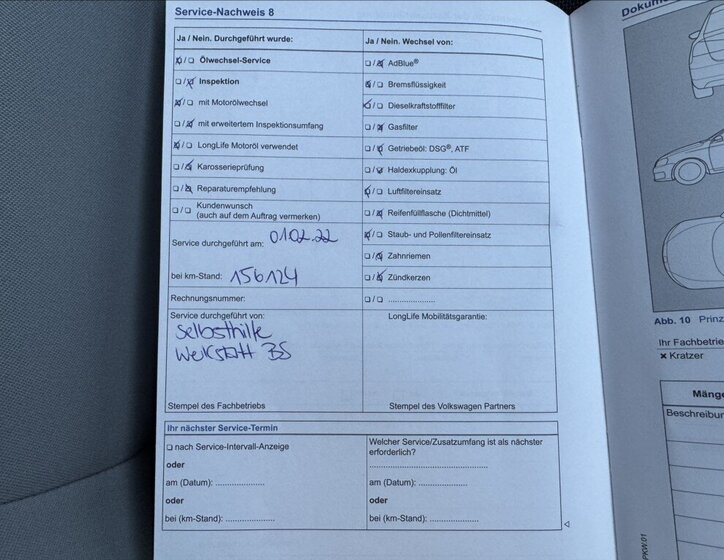 Service-Nachweis 8
Ja / Nein. Durchgeführt wurde:
☒/☐ Ölwechsel-Service
☐/☒ Inspektion
☒/☐ mit Motorölwechsel
☐/☒ mit erweitertem Inspektionsumfang
☒/☐ LongLife Motoröl verwendet
☐/☒ Karosserieprüfung
☐/☒ Reparaturempfehlung
☐/☐ Kundenwunsch
(auch auf dem Auftrag vermerken)
Service durchgeführt am: 01.02.22
bei km-Stand: 156124
Rechnungsnummer:
Service durchgeführt von:
Selbsthilfe
Werkstatt BS
Stempel des Fachbetriebs
Ja / Nein. Wechsel von:
☐/☒ AdBlue®
☒/☐ Bremsflüssigkeit
☒/☐ Dieselkraftstofffilter
☐/☒ Gasfilter
☐/☒ Getriebeöl: DSG®, ATF
☐/☒ Haldexkupplung: Öl
☒/☐ Luftfiltereinsatz
☐/☒ Reifenfüllflasche (Dichtmittel)
☒/☐ Staub- und Pollenfiltereinsatz
☐/☒ Zahnriemen
☐/☒ Zündkerzen
☐/☐ .....................
LongLife Mobilitätsgarantie:
Stempel des Volkswagen Partners
Ihr nächster Service-Termin
☐ nach Service-Intervall-Anzeige
oder
am (Datum): .....................
oder
bei (km-Stand): .....................
Welcher Service/Zusatzumfang ist als nächster
erforderlich?
..................................................
am (Datum): .....................
oder
bei (km-Stand): .....................
Abb. 10 Prinz
Ihr Fachbetrie
× Kratzer
Mänge
Beschreibur
PKW.01